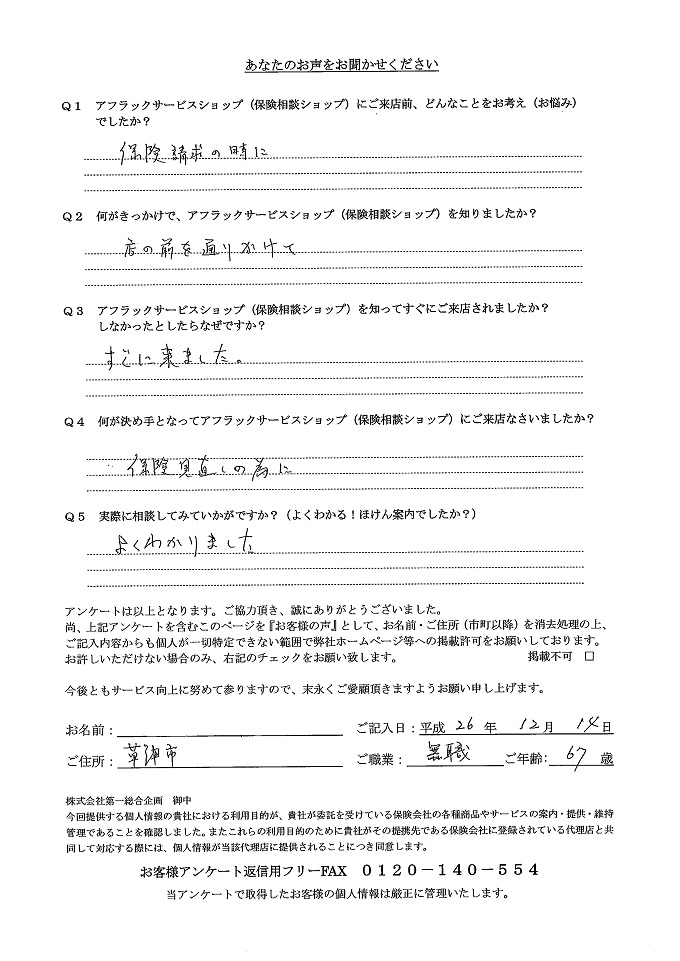 あなたのお声をお聞かせください
Q1 アフラックサービスショップ（保険相談ショップ）にご来店前、どんなことをお考え（お悩み）
でしたか？
保険請求の時に
Q2 何がきっかけで、アフラックサービスショップ（保険相談ショップ）を知りましたか？
店の前を通りかけて
Q3 アフラックサービスショップ（保険相談ショップ）を知ってすぐにご来店されましたか？
しなかったとしたらなぜですか？
すぐに来ました。
Q4 何が決め手となってアフラックサービスショップ（保険相談ショップ）にご来店なさいましたか？
保険見直しの為に
Q5 実際に相談してみていかがですか？（よくわかる！ほけん案内でしたか？）
よくわかりました
アンケートは以上となります。ご協力頂き、誠にありがとうございました。
尚、上記アンケートを含むこのページを『お客様の声』として、お名前・ご住所（市町以降）を消去処理の上、
ご記入内容からも個人が一切特定できない範囲で弊社ホームページ等への掲載許可をお願いしております。
お許しいただけない場合のみ、右記のチェックをお願い致します。 掲載不可 □
今後ともサービス向上に努めて参りますので、末永くご愛顧頂きますようお願い申し上げます。
お名前： ご記入日：平成 26 年 12 月 14 日
ご住所： 草津市 ご職業： 無職 ご年齢： 67 歳
株式会社第一総合企画 御中
今回提供する個人情報の貴社における利用目的が、貴社が委託を受けている保険会社の各種商品やサービスの案内・提供・維持
管理であることを確認しました。またこれらの利用目的のために貴社がその提携先である保険会社に登録されている代理店と共
同して対応する際には、個人情報が当該代理店に提供されることにつき同意します。
お客様アンケート返信用フリーFAX 0120－140－554
当アンケートで取得したお客様の個人情報は厳正に管理いたします。